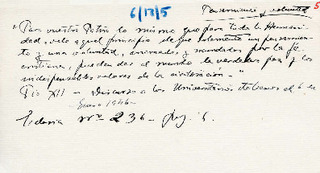 6/17/5
Pensamiento y voluntad 5
"Por vuestra Patria lo mismo que para toda la Humanidad, vale aquel principio de que solamente un pensamiento y una voluntad, animados y mandados por la fé cristiana, pueden dar al mundo la verdadera paz y los indispensables valores de la civilización."
Pio XII — Discurso a los Universitarios 6 de
Enero 1946.—
Ecclesia nº 236 — pag. 6.